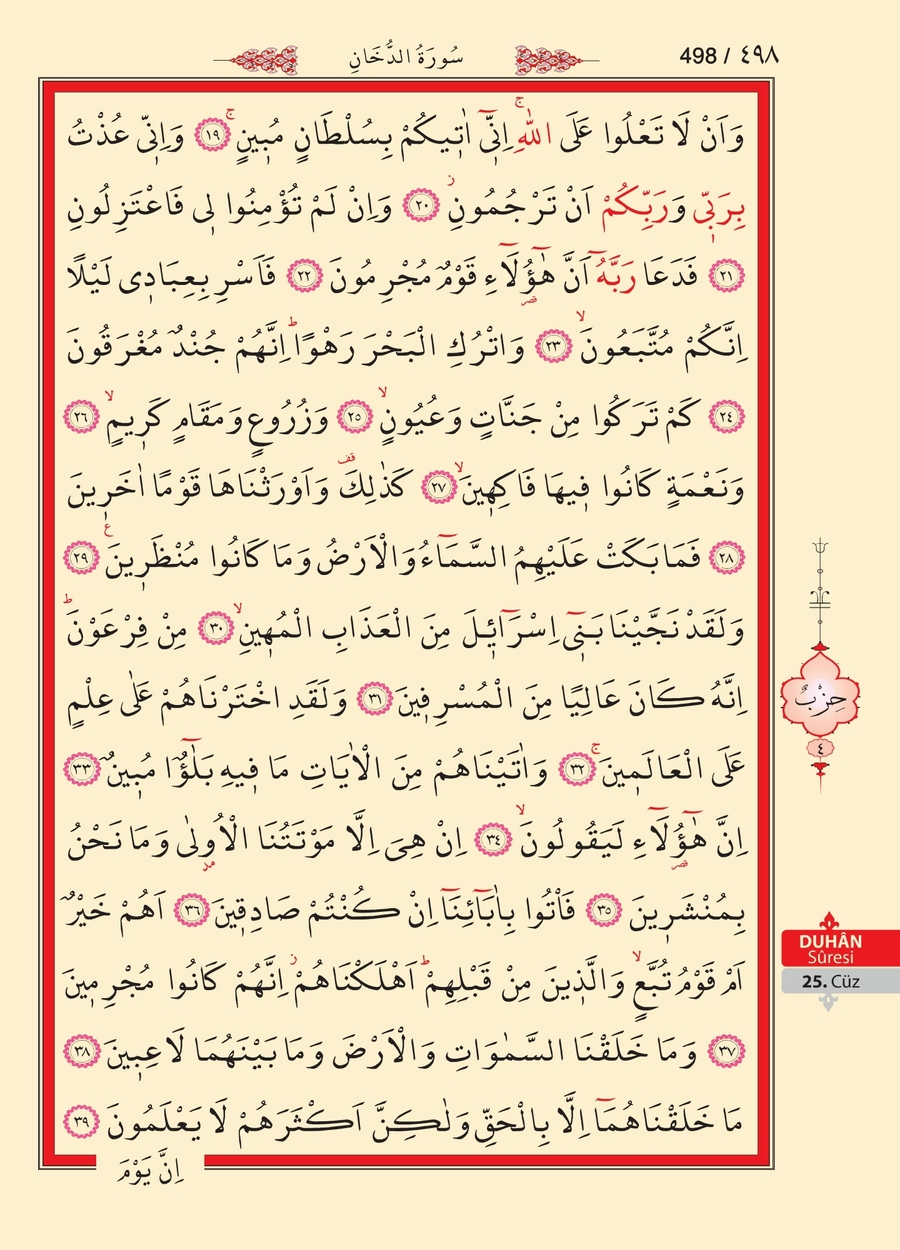 498 / ٤٩٨
سُورَةُ الدُّخَانِ
وَاَنْ لَا تَعْلُوا عَلَى اللّٰهِۚ اِنّٖٓي اٰتٖيكُمْ بِسُلْطَانٍ مُبٖينٍۚ ﴿١٩﴾ وَاِنّٖي عُذْتُ
بِرَبّٖي وَرَبِّكُمْ اَنْ تَرْجُمُونِؗ ﴿٢٠﴾ وَاِنْ لَمْ تُؤْمِنُوا لٖي فَاعْتَزِلُونِ
﴿٢١﴾ فَدَعَا رَبَّهُٓ اَنَّ هٰٓؤُ۬لَٓاءِ قَوْمٌ مُجْرِمُونَ ﴿٢٢﴾ فَاَسْرِ بِعِبَادٖي لَيْلًا
اِنَّكُمْ مُتَّبَعُونَۙ ﴿٢٣﴾ وَاتْرُكِ الْبَحْرَ رَهْوًاؕ اِنَّهُمْ جُنْدٌ مُغْرَقُونَ
﴿٢٤﴾ كَمْ تَرَكُوا مِنْ جَنَّاتٍ وَعُيُونٍۙ ﴿٢٥﴾ وَزُرُوعٍ وَمَقَامٍ كَرٖيمٍۙ ﴿٢٦﴾
وَنَعْمَةٍ كَانُوا فٖيهَا فَاكِهٖينَۙ ﴿٢٧﴾ كَذٰلِكَ قف وَاَوْرَثْنَاهَا قَوْمًا اٰخَرٖينَ
﴿٢٨﴾ فَمَا بَكَتْ عَلَيْهِمُ السَّمَٓاءُ وَالْاَرْضُ وَمَا كَانُوا مُنْظَرٖينَ ع ﴿٢٩﴾
وَلَقَدْ نَجَّيْنَا بَنٖٓي اِسْرَٓائٖلَ مِنَ الْعَذَابِ الْمُهٖينِۙ ﴿٣٠﴾ مِنْ فِرْعَوْنَؕ
اِنَّهُ كَانَ عَالِيًا مِنَ الْمُسْرِفٖينَ ﴿٣١﴾ وَلَقَدِ اخْتَرْنَاهُمْ عَلٰى عِلْمٍ
عَلَى الْعَالَمٖينَۚ ﴿٣٢﴾ وَاٰتَيْنَاهُمْ مِنَ الْاٰيَاتِ مَا فٖيهِ بَلٰٓؤٌ۬ا مُبٖينٌ ﴿٣٣﴾
اِنَّ هٰٓؤُ۬لَٓاءِ لَيَقُولُونَۙ ﴿٣٤﴾ اِنْ هِيَ اِلَّا مَوْتَتُنَا الْاُو۫لٰى وَمَا نَحْنُ
بِمُنْشَرٖينَ ﴿٣٥﴾ فَأْتُوا بِاٰبَٓائِنَٓا اِنْ كُنْتُمْ صَادِقٖينَ ﴿٣٦﴾ اَهُمْ خَيْرٌ
اَمْ قَوْمُ تُبَّعٍۙ وَالَّذٖينَ مِنْ قَبْلِهِمْؕ اَهْلَكْنَاهُمْؗ اِنَّهُمْ كَانُوا مُجْرِمٖينَ
﴿٣٧﴾ وَمَا خَلَقْنَا السَّمٰوَاتِ وَالْاَرْضَ وَمَا بَيْنَهُمَا لَاعِبٖينَ ﴿٣٨﴾
مَا خَلَقْنَاهُمَٓا اِلَّا بِالْحَقِّ وَلٰكِنَّ اَكْثَرَهُمْ لَا يَعْلَمُونَ ﴿٣٩﴾
اِنَّ يَوْمَ
حِزْبٌ
٤
DUHÂN
Sûresi
25. Cüz